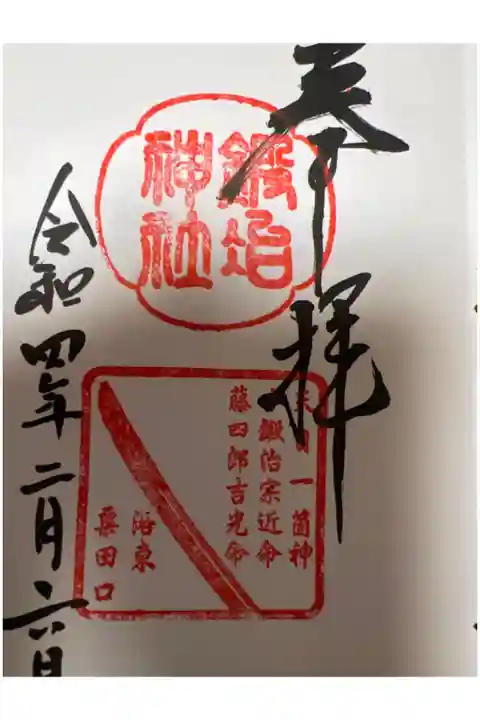 奉拝
鍛冶
神社
天目一箇神
鍛冶宗近命
藤四郎吉光命
洛東
粟田口
令和四年二月六日